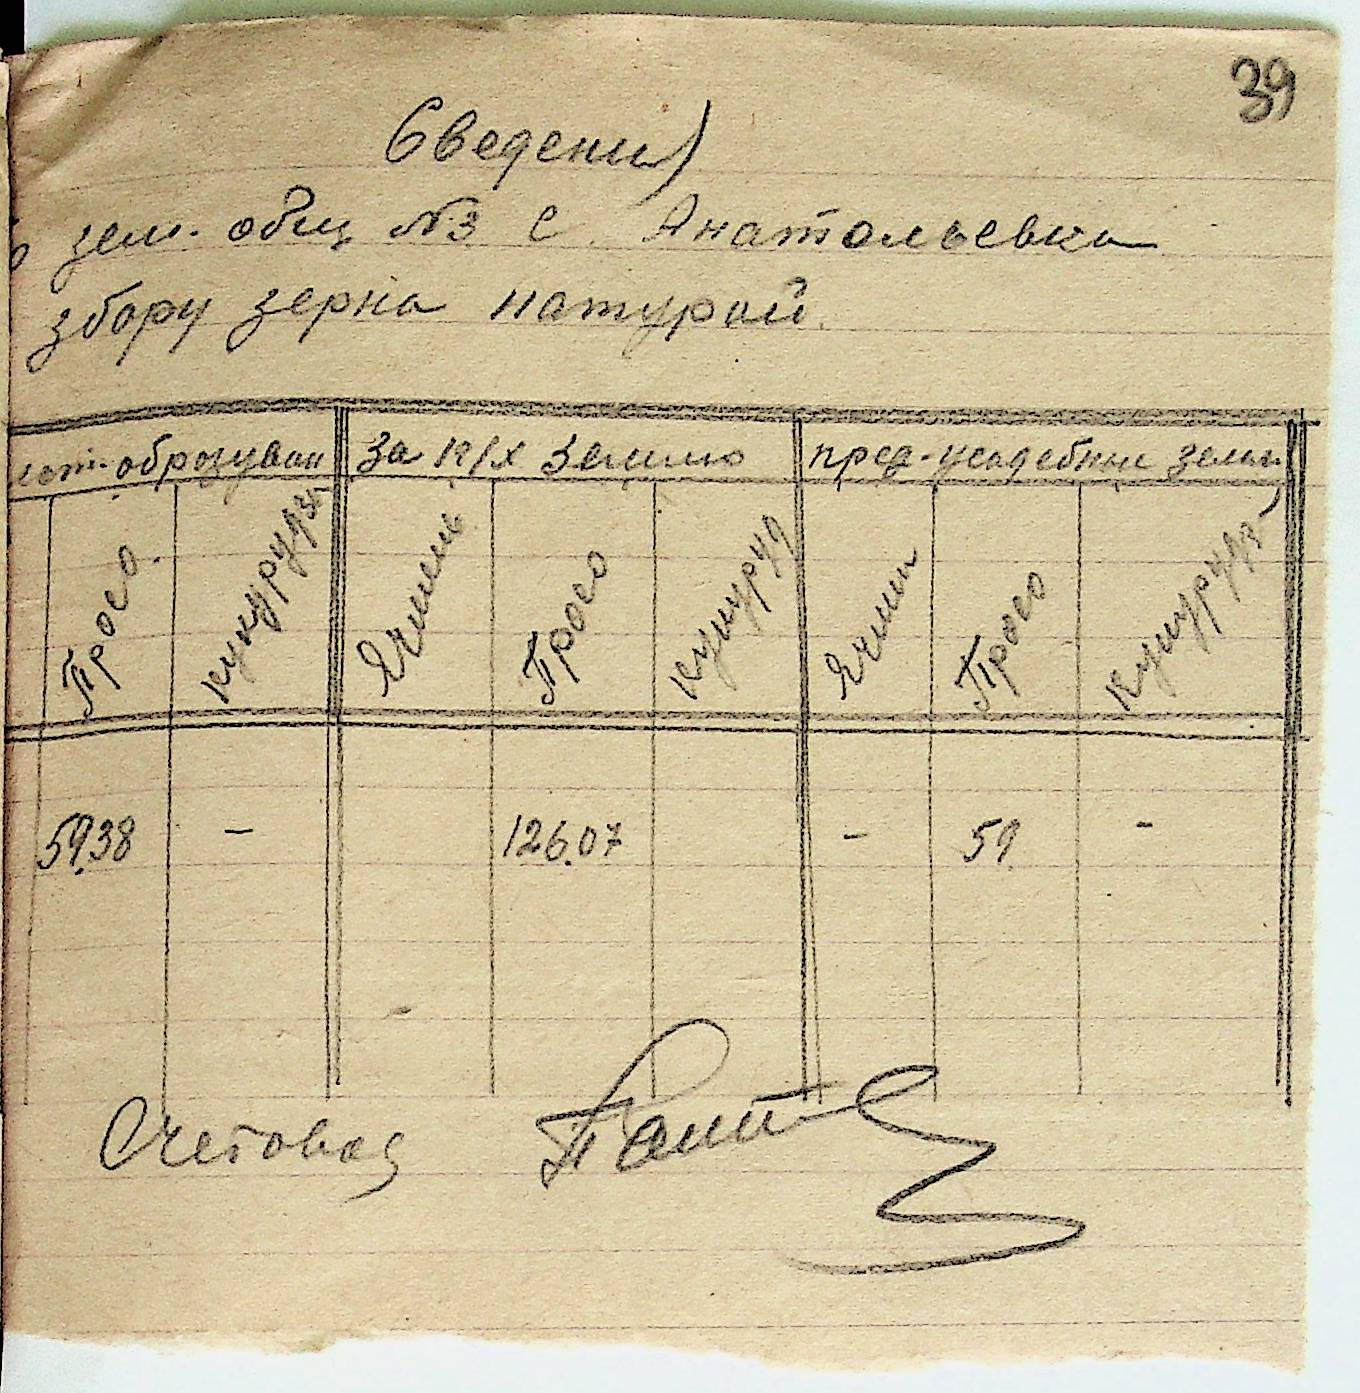 39
Сведения
зем. общ №3 с. Анатольевка
збору зерна натурой.
образуван за к/х землю пред-усадебные земли
Просо кукурудз Ячмень Просо кукуруд Ячмень Просо кукурудз
59.38 - 126.07 - 59 -
Счетовод